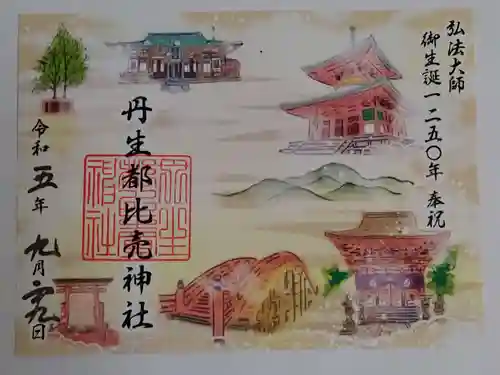 弘法大師
御生誕一二五〇年 奉祝
丹生都比売神社
令和五年九月二九日